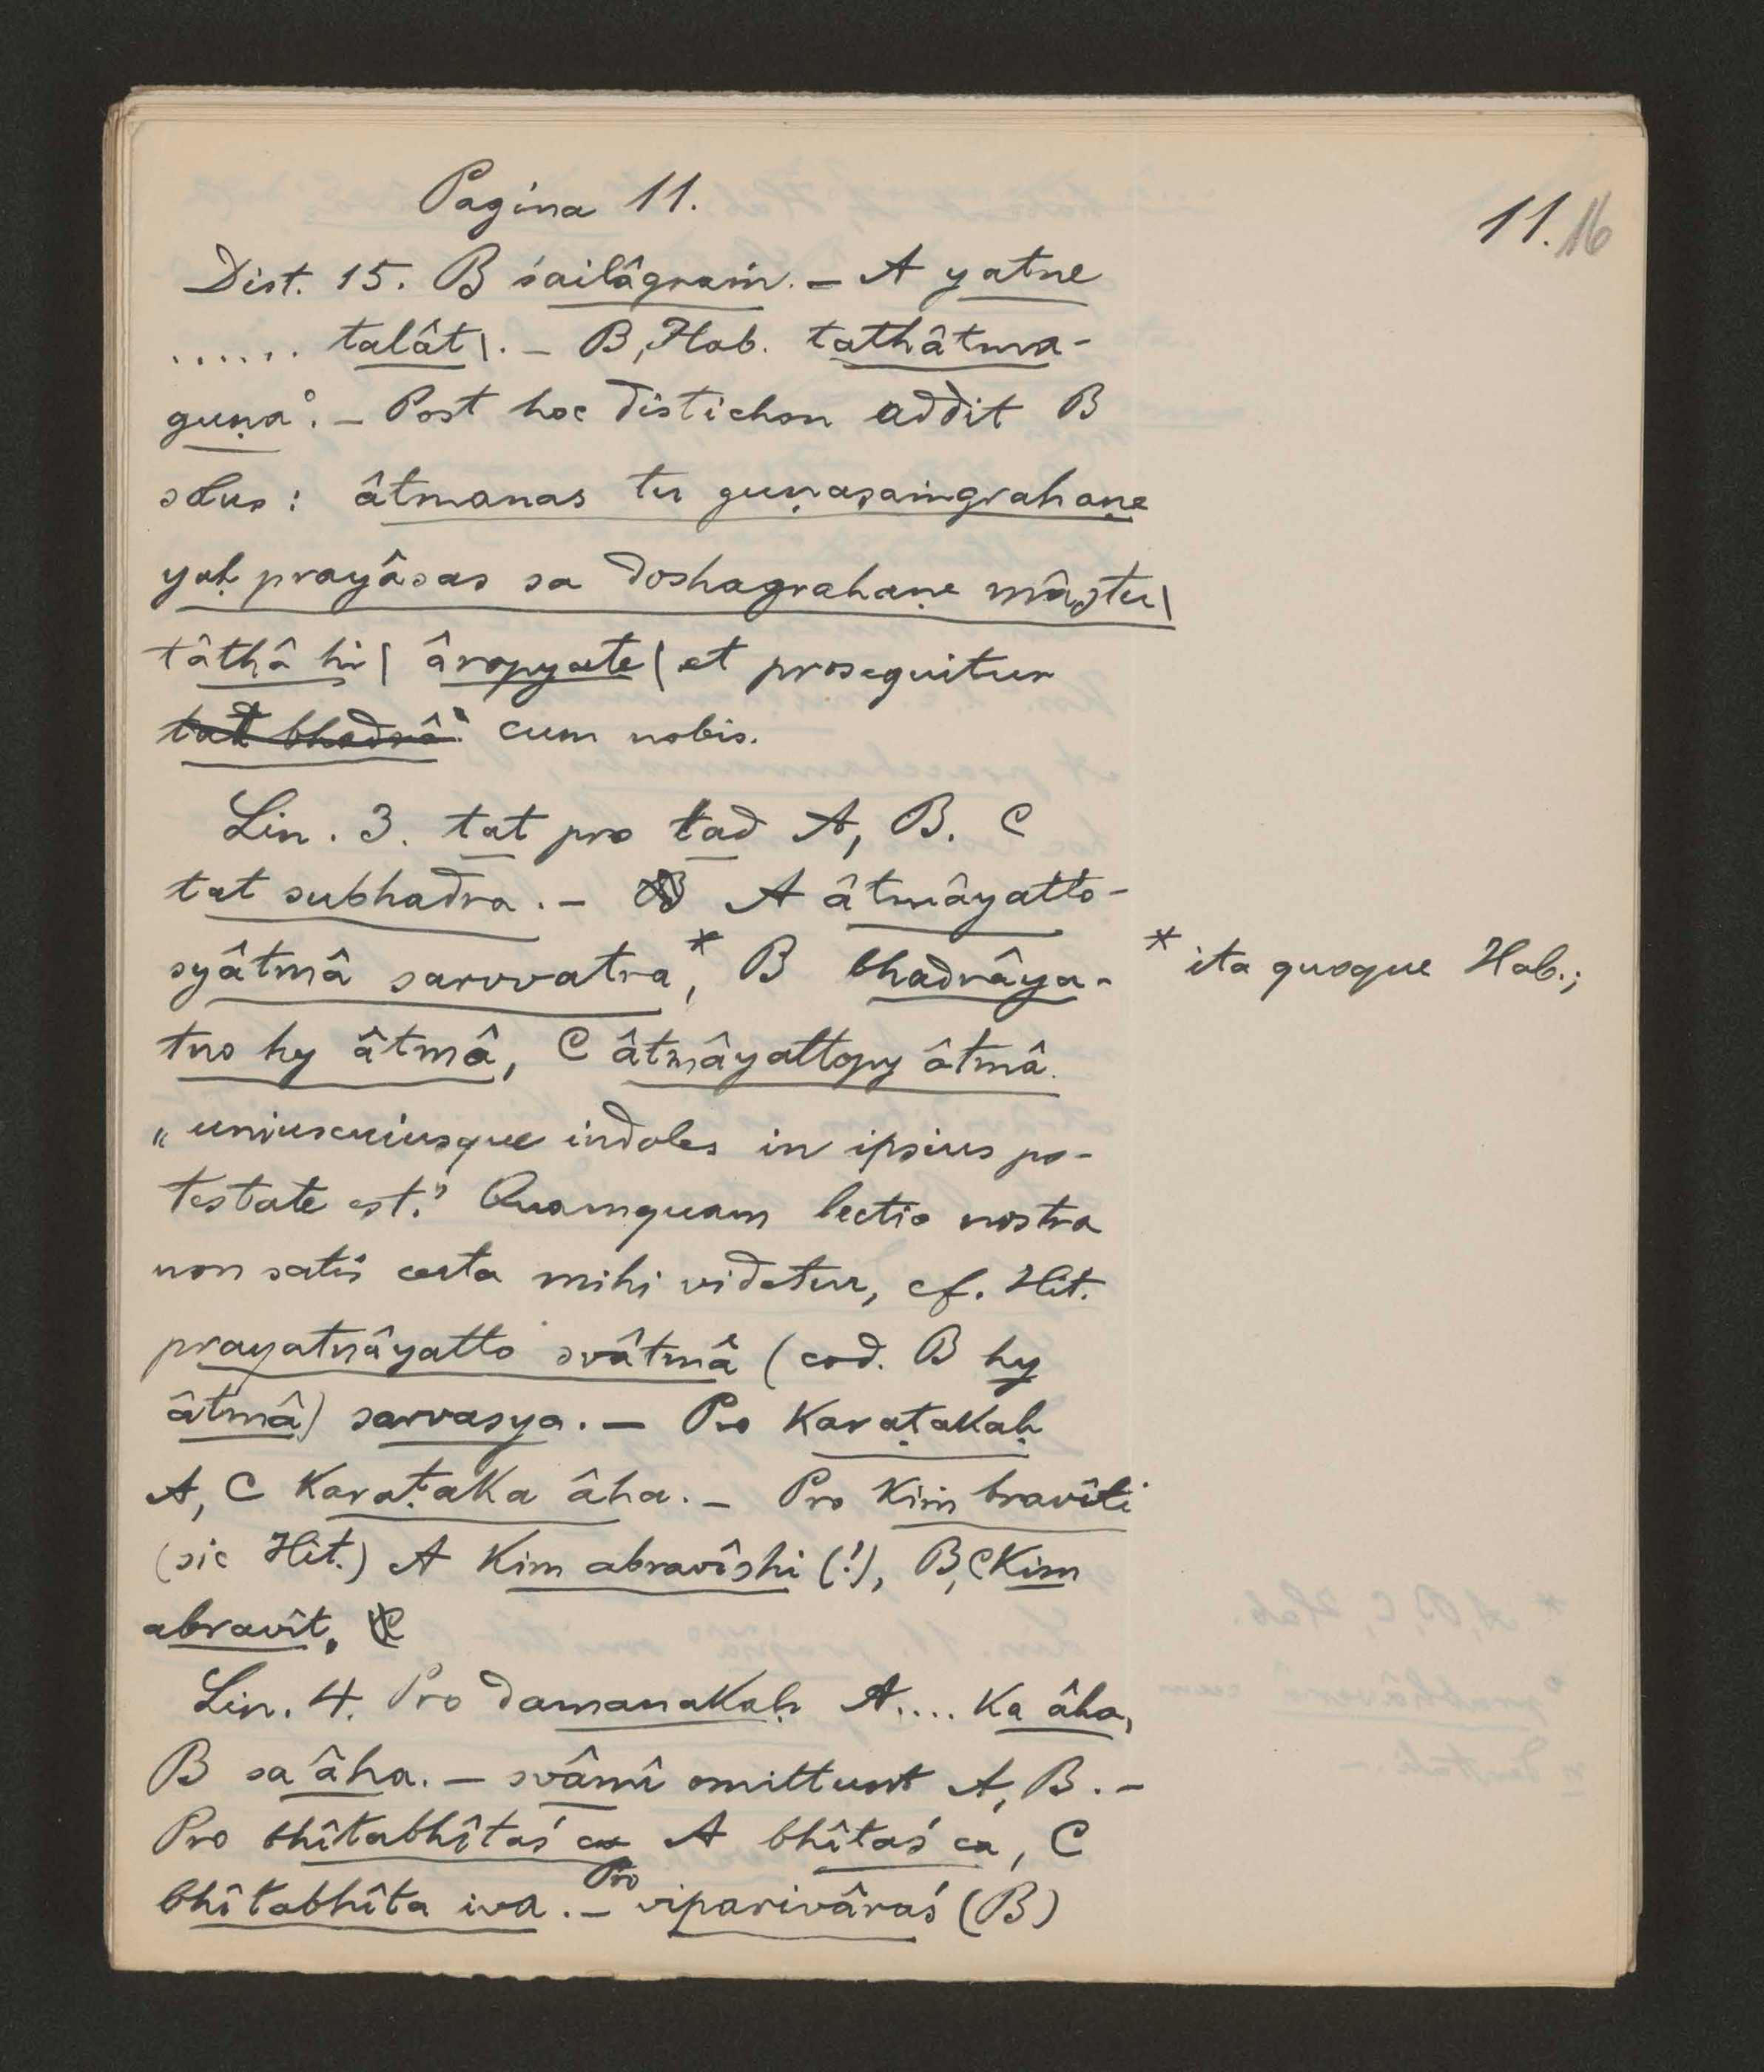 Pagina 11.
11. 16
Dist. 15. B śailâgraṁ. – A yatne
...... talât\. – B, Hab. tathâtma-
guṇa°. – Post hoc distichon addit B
solus: âtmanas tu guṇasaṁgrahaṇe
yaḥ prayâsas sa doshagrahaṇe mâstu\
tâthâ hi\ âropyate\ et prosequitur
tad bhadrâ° cum nobis.
Lin. 3. tat pro tad A, B. C
tat subhadra. – A âtmâyatto-
syâtmâ sarvvatra,* B bhadrâya-
* ita quoque Hab.;
tno hy âtmâ, C âtmâyattopy âtmâ.
„uniuscuiusque indoles in ipsius po-
testate est." Quamquam lectio nostra
non satis certa mihi videtur, cf. Hit.
prayatnâyatto svâtmâ (cod. B hy
âtmâ) sarvasya. – Pro Karaṭakaḥ
A, C Karaṭaka âha. – Pro Kiṁ bravîti
(sic Hit.) A Kim abravîshi (!), B, C Kim
abravît.
Lin. 4. Pro damanakaḥ A.... ka âha,
B sa âha. – svâmî omittunt A, B. –
Pro bhîtabhîtaś ca A bhîtaś ca, C
bhîtabhîta iva. – Pro viparivâraś (B)